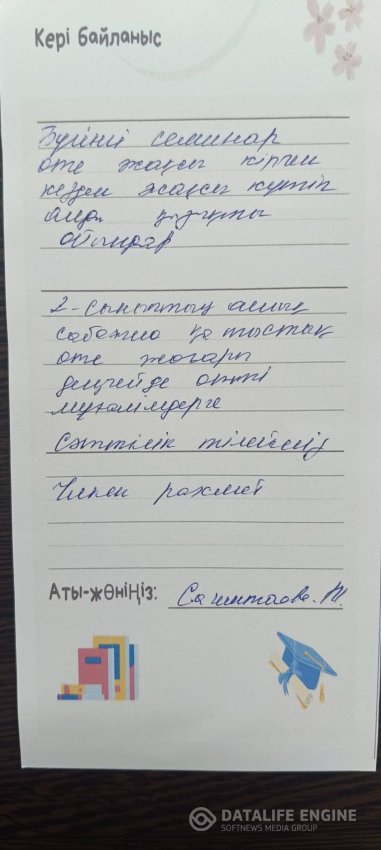 Кері байланыс
Бүгінгі семинар
өте жақсы кірген
кезден жақсы күтіп
алды қызықты
ойындар
2-сыныптың ашық
сабағына қатыстық
өте жоғары
деңгейде өтті
мұғалімдерге
Сәттілік тілейміз
Үлкен рахмет
Аты-жөніңіз:
DATALIFE ENGINE
SOFTNEWS MEDIA GROUP